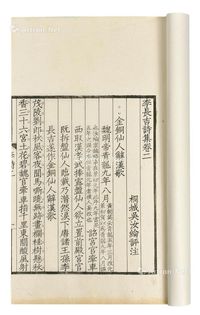 李長吉詩集卷二
桐城吳汝綸評注
金銅仙人辭漢歌
魏明帝青龍九年八月
詔宮官牽車
西取漢孝武捧露盤仙人欲立置前殿宮官
既拆盤仙人臨載乃潸然淚下唐諸王孫李
長吉遂作金銅仙人辭漢歌
茂陵劉郎秋風客夜聞馬嘶曉無跡畫欄桂樹懸秋
香三十六宮土花碧魏官牽車指千里東關酸風射